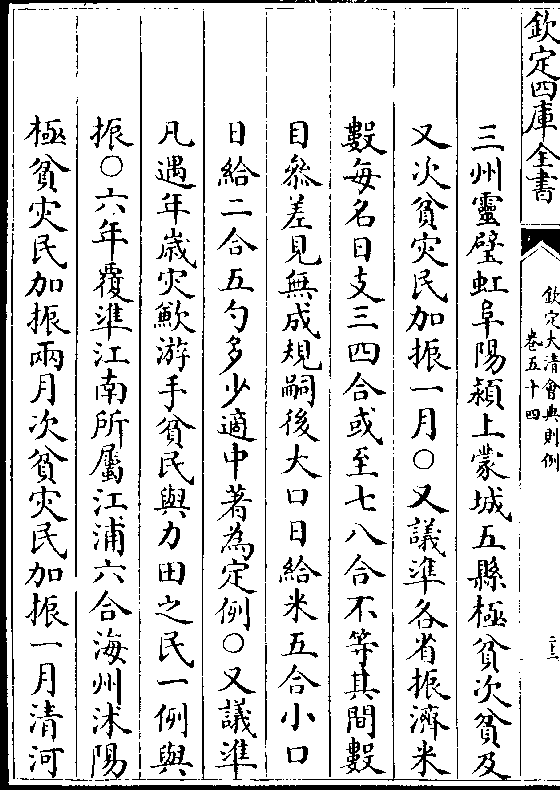 欽定四庫全書
欽定大清會典則例
卷五十四
三州靈璧虹阜陽潁上蒙城五縣極貧次貧及
又次貧災民加振一月○又議準各省振濟米
數每名日支三四合或至七八合不等其間數
目叅差見無成規嗣後大口日給米五合小口
日給二合五勺多少適中著為定例○又議準
凡遇年嵗災歉游手貧民與力田之民一例與
振○六年覆準江南所屬江浦六合海州沭陽
極貧災民加振兩月次貧災民加振一月清河